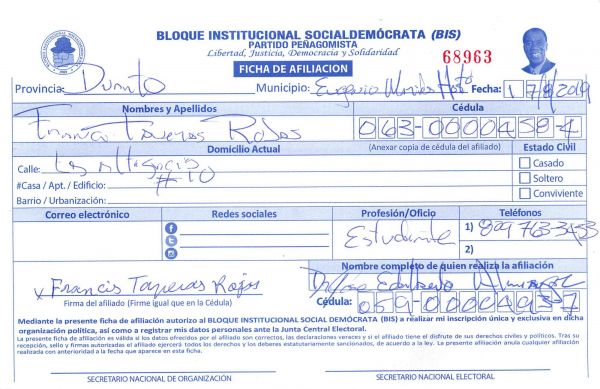 BLOQUE INSTITUCIONAL SOCIALDEMÓCRATA (BIS)
PARTIDO PEÑAGOMISTA
Libertad, Justicia, Democracia y Solidaridad
68963
FICHA DE AFILIACION
Provincia: Duarte Municipio: Eugenio María de Hostos Fecha: 17/8/2019
Nombres y Apellidos Cédula
Francis Taveras Rojas 063-0000458-4
Domicilio Actual (Anexar copia de cédula del afiliado) Estado Civil
Calle: Casado
#Casa / Apt. / Edificio: #10 Soltero
Barrio / Urbanización: Conviviente
Correo electrónico Redes sociales Profesión/Oficio Teléfonos
Estudiante 1) 829 763-3453
2)
Nombre completo de quien realiza la afiliación
x Francis Taveras Rojas
Firma del afiliado (Firme igual que en la Cédula) Cédula: 059-0000493-7
Mediante la presente ficha de afiliación autorizo al BLOQUE INSTITUCIONAL SOCIAL DEMÓCRATA (BIS) a realizar mi inscripción única y exclusiva en dicha
organización política, así como a registrar mis datos personales ante la Junta Central Electoral.
La presente ficha de afiliación es válida si los datos ofrecidos por el afiliado son correctos, las declaraciones veraces y si el afiliado tiene el disfrute de sus derechos civiles y políticos. Tras su
recepción, sello y firmas autorizadas el afiliado ejercerá todos los derechos y los deberes estatutariamente sancionados, de acuerdo a la ley. La presente afiliación anula cualquier afiliación
realizada con anterioridad a la fecha que aparece en esta ficha.
SECRETARIO NACIONAL DE ORGANIZACIÓN SECRETARIO NACIONAL ELECTORAL